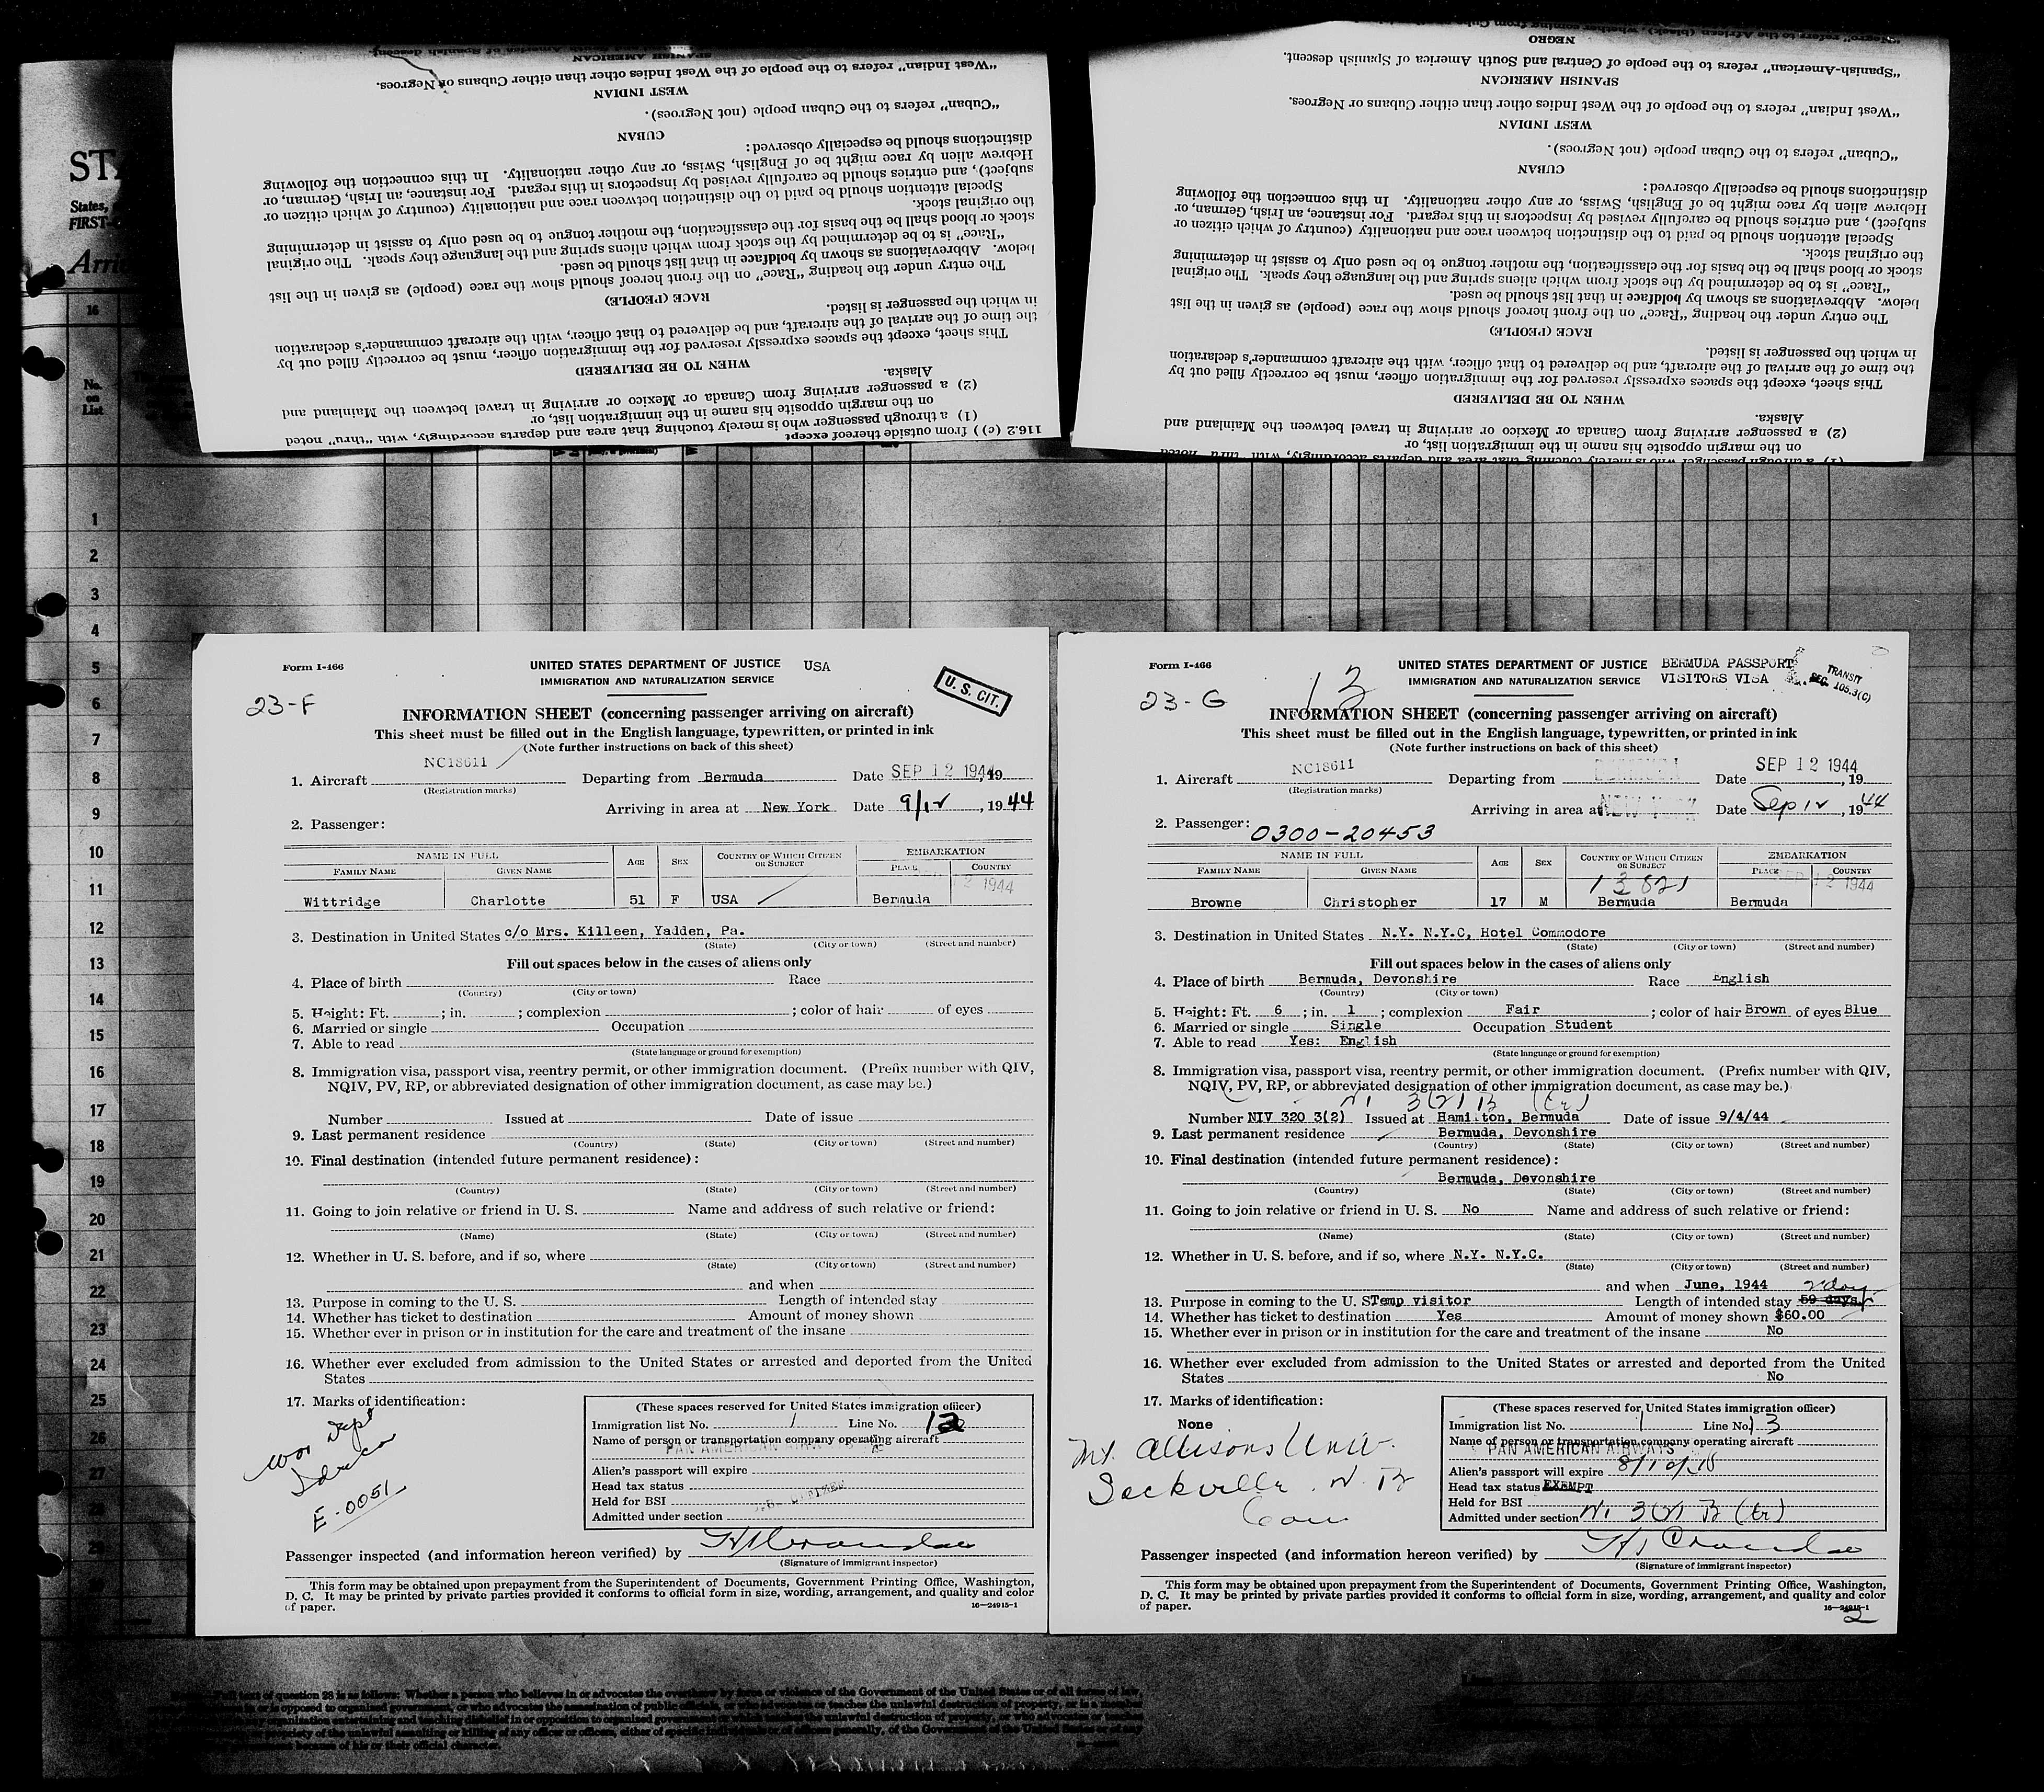 "West Indian" refers to the people of the West Indies other than either Cubans or Negroes.
WEST INDIAN
"Cuban" refers to the Cuban people (not Negroes).
CUBAN
distinctions should be especially observed:
Hebrew alien by race might be of English, Swiss, or any other nationality. In this connection the following
subject), and entries should be carefully revised by inspectors in this regard. For instance, an Irish, German, or
Special attention should be paid to the distinction between race and nationality (country of which citizen or
the original stock.
stock or blood shall be the basis for the classification, the mother tongue to be used only to assist in determining
"Race" is to be determined by the stock from which aliens spring and the language they speak. The original
below. Abbreviations as shown by boldface in that list should be used.
The entry under the heading "Race" on the front hereof should show the race (people) as given in the list
RACE (PEOPLE)
in which the passenger is listed.
the time of the arrival of the aircraft, and be delivered to that officer, with the aircraft commander's declaration
This sheet, except the spaces expressly reserved for the immigration officer, must be correctly filled out by
WHEN TO BE DELIVERED
Alaska.
(2) a passenger arriving from Canada or Mexico or arriving in travel between the Mainland and
on the margin opposite his name in the immigration list, or
(1) a through passenger who is merely touching that area and departs accordingly, with "thru" noted
116.2 (c)) from outside thereof except
NEGRO
"Spanish-American" refers to the people of Central and South America of Spanish descent.
SPANISH AMERICAN
"West Indian" refers to the people of the West Indies other than either Cubans or Negroes.
WEST INDIAN
"Cuban" refers to the Cuban people (not Negroes).
CUBAN
distinctions should be especially observed:
Hebrew alien by race might be of English, Swiss, or any other nationality. In this connection the following
subject), and entries should be carefully revised by inspectors in this regard. For instance, an Irish, German, or
Special attention should be paid to the distinction between race and nationality (country of which citizen or
the original stock.
stock or blood shall be the basis for the classification, the mother tongue to be used only to assist in determining
"Race" is to be determined by the stock from which aliens spring and the language they speak. The original
below. Abbreviations as shown by boldface in that list should be used.
The entry under the heading "Race" on the front hereof should show the race (people) as given in the list
RACE (PEOPLE)
in which the passenger is listed.
the time of the arrival of the aircraft, and be delivered to that officer, with the aircraft commander's declaration
This sheet, except the spaces expressly reserved for the immigration officer, must be correctly filled out by
WHEN TO BE DELIVERED
Alaska.
(2) a passenger arriving from Canada or Mexico or arriving in travel between the Mainland and
on the margin opposite his name in the immigration list, or
States,
FIRST-
16
No.
on
List
1
2
3
4
5
6
7
8
9
10
11
12
13
14
15
16
17
18
19
20
21
22
23
24
25
26
27
28
29
Form I-466 UNITED STATES DEPARTMENT OF JUSTICE USA
IMMIGRATION AND NATURALIZATION SERVICE
U. S. CIT.
23-F
INFORMATION SHEET (concerning passenger arriving on aircraft)
This sheet must be filled out in the English language, typewritten, or printed in ink
(Note further instructions on back of this sheet)
NC18611
1. Aircraft Departing from Bermuda Date SEP 12 1944, 19
(Registration marks)
Arriving in area at New York Date 9/12, 1944
2. Passenger:
NAME IN FULL AGE SEX COUNTRY OF WHICH CITIZEN OR SUBJECT EMBARKATION
FAMILY NAME GIVEN NAME PLACE COUNTRY
12 1944
Wittridge Charlotte 51 F USA Bermuda
3. Destination in United States c/o Mrs. Killeen, Yadden, Pa.
(State) (City or town) (Street and number)
Fill out spaces below in the cases of aliens only
4. Place of birth Race
(Country) (City or town)
5. Height: Ft. ; in. ; complexion ; color of hair of eyes
6. Married or single Occupation
7. Able to read
(State language or ground for exemption)
8. Immigration visa, passport visa, reentry permit, or other immigration document. (Prefix number with QIV,
NQIV, PV, RP, or abbreviated designation of other immigration document, as case may be.)
Number Issued at Date of issue
9. Last permanent residence
(Country) (State) (City or town) (Street and number)
10. Final destination (intended future permanent residence):
(Country) (State) (City or town) (Street and number)
11. Going to join relative or friend in U. S. Name and address of such relative or friend:
(Name) (State) (City or town) (Street and number)
12. Whether in U. S. before, and if so, where
(State) (City or town) (Street and number)
and when
13. Purpose in coming to the U. S. Length of intended stay
14. Whether has ticket to destination Amount of money shown
15. Whether ever in prison or in institution for the care and treatment of the insane
16. Whether ever excluded from admission to the United States or arrested and deported from the United
States
17. Marks of identification:
War Dept
E-0051
(These spaces reserved for United States immigration officer)
Immigration list No. 1 Line No. 12
Name of person or transportation company operating aircraft
PAN AMERICAN AIRWAYS
Alien's passport will expire
Head tax status
Held for BSI
U.S. CITIZEN
Admitted under section
Passenger inspected (and information hereon verified) by
(Signature of immigrant inspector)
This form may be obtained upon prepayment from the Superintendent of Documents, Government Printing Office, Washington,
D. C. It may be printed by private parties provided it conforms to official form in size, wording, arrangement, and quality and color
of paper. 16—24915-1
Form I-466 UNITED STATES DEPARTMENT OF JUSTICE BERMUDA PASSPORT
IMMIGRATION AND NATURALIZATION SERVICE VISITORS VISA
TRANSIT
SEC. 105.3(C)
23-G
13
INFORMATION SHEET (concerning passenger arriving on aircraft)
This sheet must be filled out in the English language, typewritten, or printed in ink
(Note further instructions on back of this sheet)
NC18611
1. Aircraft Departing from BERMUDA Date SEP 12 1944, 19
(Registration marks)
Arriving in area at NEW YORK Date Sep 12, 1944
2. Passenger: 0300-20453
NAME IN FULL AGE SEX COUNTRY OF WHICH CITIZEN OR SUBJECT EMBARKATION
FAMILY NAME GIVEN NAME PLACE COUNTRY
SEP 12 1944
Browne Christopher 17 M Bermuda Bermuda
3. Destination in United States N.Y. N.Y.C, Hotel Commodore
(State) (City or town) (Street and number)
Fill out spaces below in the cases of aliens only
4. Place of birth Bermuda, Devonshire Race English
(Country) (City or town)
5. Height: Ft. 6 ; in. 1 ; complexion Fair ; color of hair Brown of eyes Blue
6. Married or single Single Occupation Student
7. Able to read Yes: English
(State language or ground for exemption)
8. Immigration visa, passport visa, reentry permit, or other immigration document. (Prefix number with QIV,
NQIV, PV, RP, or abbreviated designation of other immigration document, as case may be.)
Number NIV 320 3(2) Issued at Hamilton, Bermuda Date of issue 9/4/44
9. Last permanent residence Bermuda, Devonshire
(Country) (State) (City or town) (Street and number)
10. Final destination (intended future permanent residence):
Bermuda, Devonshire
(Country) (State) (City or town) (Street and number)
11. Going to join relative or friend in U. S. No Name and address of such relative or friend:
(Name) (State) (City or town) (Street and number)
12. Whether in U. S. before, and if so, where N.Y. N.Y.C.
(State) (City or town) (Street and number)
and when June, 1944 2 day
13. Purpose in coming to the U. S. Temp visitor Length of intended stay 59 days
14. Whether has ticket to destination Yes Amount of money shown $60.00
15. Whether ever in prison or in institution for the care and treatment of the insane No
16. Whether ever excluded from admission to the United States or arrested and deported from the United
States No
17. Marks of identification:
None
Mt. Allisons Univ.
Sackville, N. B
Can
(These spaces reserved for United States immigration officer)
Immigration list No. 1 Line No. 13
Name of person or transportation company operating aircraft
PAN AMERICAN AIRWAYS
Alien's passport will expire
Head tax status EXEMPT
Held for BSI
Admitted under section
Passenger inspected (and information hereon verified) by
(Signature of immigrant inspector)
This form may be obtained upon prepayment from the Superintendent of Documents, Government Printing Office, Washington,
D. C. It may be printed by private parties provided it conforms to official form in size, wording, arrangement, and quality and color
of paper. 16—24915-1
2